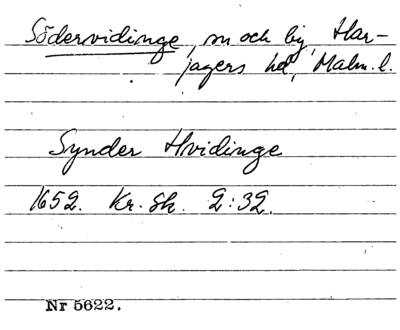 Södervidinge, sn och by, Har-
jagers hd, Malm. l.
Synder Hvidinge
1652. Kr. Sk. 2:32.
Nr 5622.